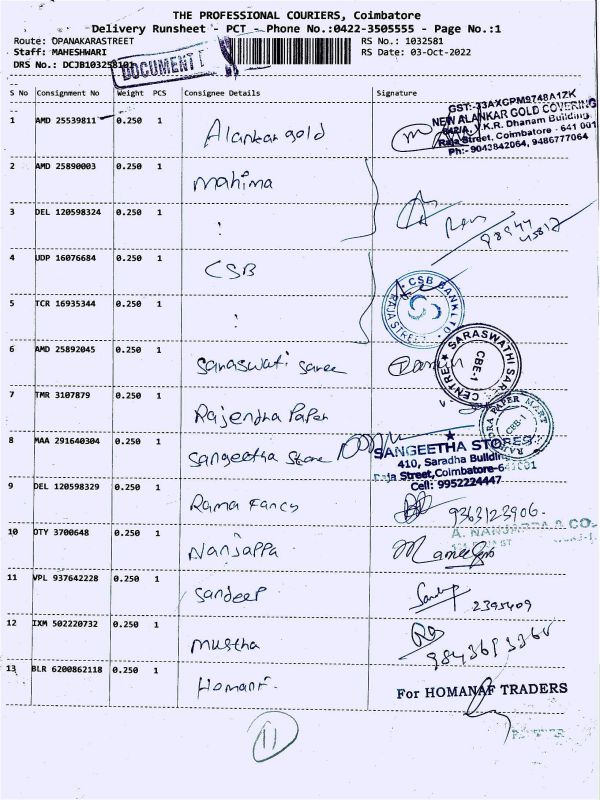 THE PROFESSIONAL COURIERS, Coimbatore
Delivery Runsheet - PCT - Phone No.:0422-3505555 - Page No.:1
Route: OPANAKARASTREET RS No.: 1032581
Staff: MAHESHWARI RS Date: 03-Oct-2022
DRS No.: DCJB103258101
DOCUMENT
S No Consignment No Weight PCS Consignee Details Signature
1 AMD 25539811 0.250 1 Alankar gold
GST:-33AXCPM9748A1ZK
NEW ALANKAR GOLD COVERING
V.K.R. Dhanam Building,
Raja Street, Coimbatore - 641 001
Ph:- 9043842064, 9486777064
2 AMD 25890003 0.250 1 mahima
3 DEL 120598324 0.250 1 :
4 UDP 16076684 0.250 1 CSB
CSB BANK LTD
RAJA STREET
5 TCR 16935344 0.250 1 :
6 AMD 25892045 0.250 1 saraswati saree
SARASWATHI SAREE CENTRE
CBE-1
7 TMR 3107879 0.250 1 Rajendra Paper
PAPER MART
CBE-1
8 MAA 291640304 0.250 1 sangeetha store
SANGEETHA STORES
410, Saradha Building
Raja Street, Coimbatore-641001
Cell: 9952224447
9 DEL 120598329 0.250 1 Rama Fancy 9363123906.
10 OTY 3700648 0.250 1 Nanjappa
A. NANJAPPA & CO.
11 VPL 937642228 0.250 1 sandeep 2395409
12 IXM 502220732 0.250 1 mustha
13 BLR 6200862118 0.250 1 Homanf.
For HOMANAF TRADERS
11